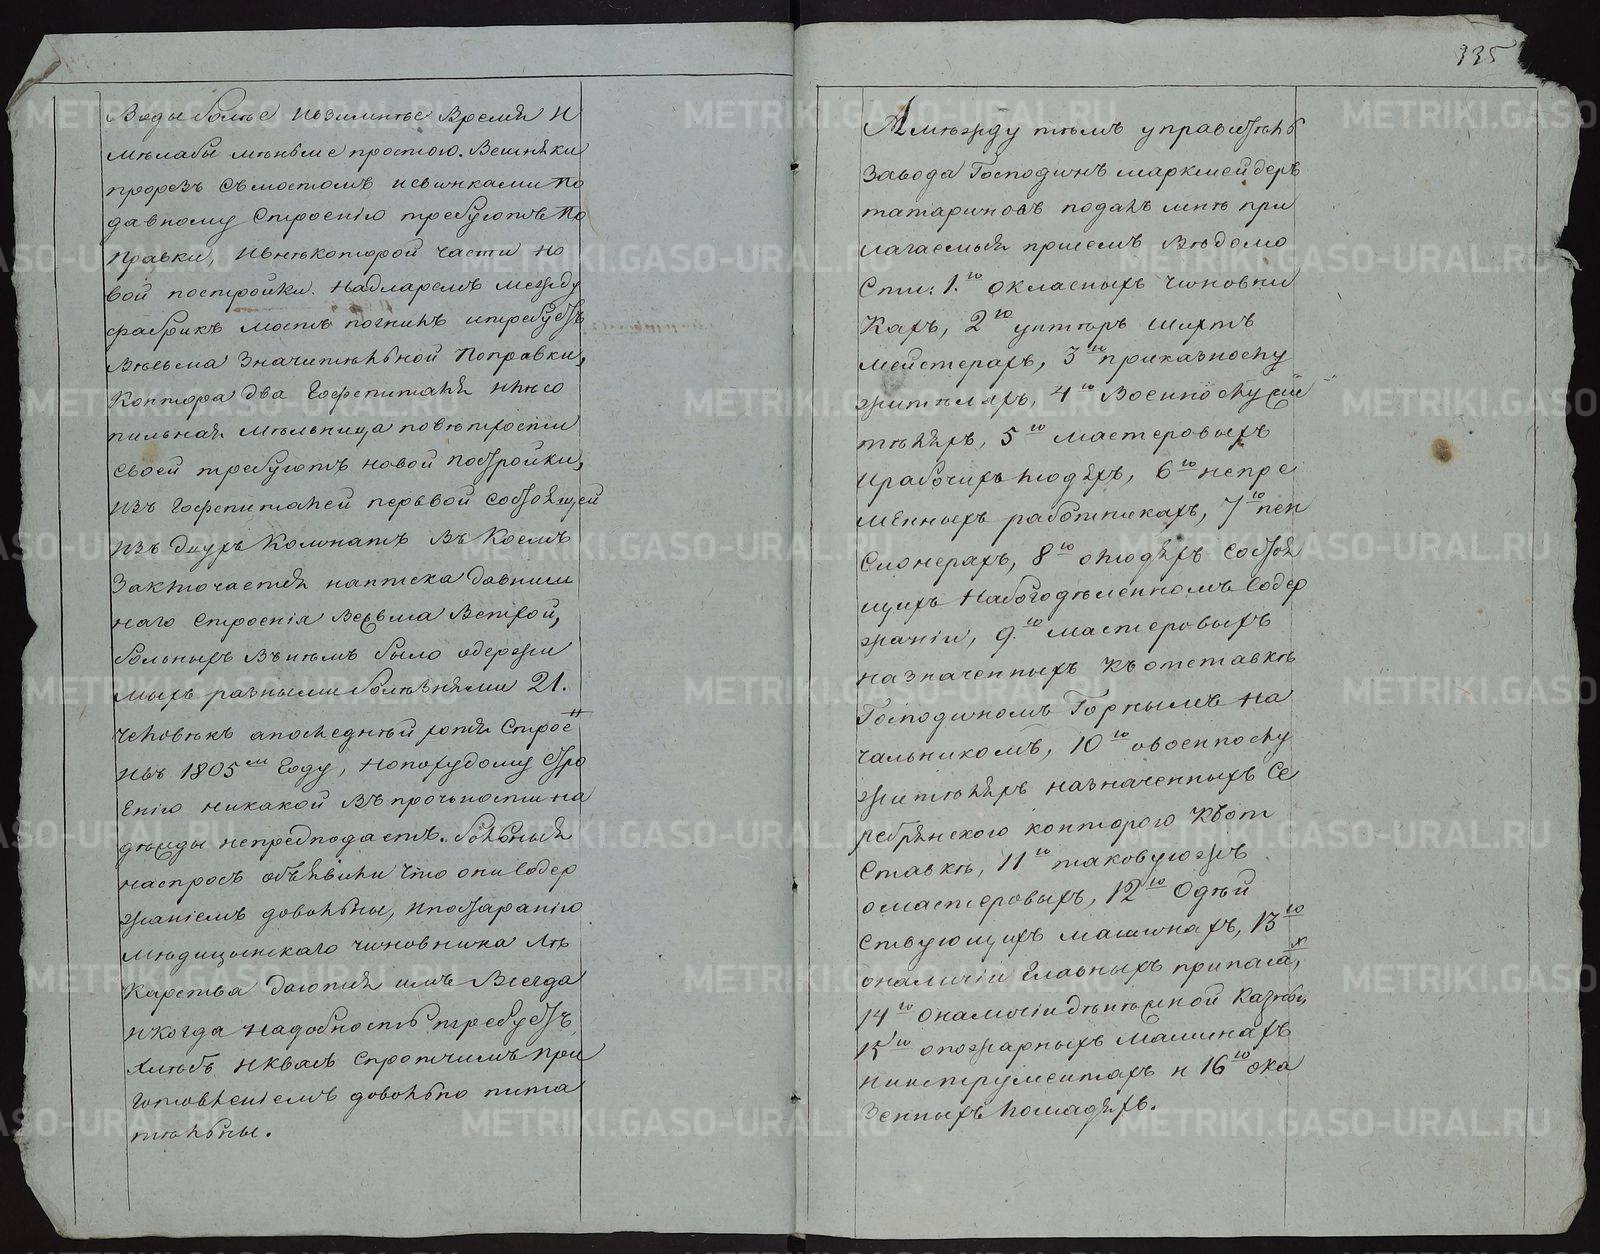 Воды более и взимнее Время и
мѣлабы менѣше простою. Вешняки
прорезъ съ мостомъ и свинками по
давному Строенію требуютъ по
правки, и внѣкоторой части но
вой постройки. Надларемъ между
фабрикъ мостъ погнилъ и требуетъ
Весьма значительной поправки,
Контора два Гофспиталя и лѣсо
пильная мѣльница по ветхости
своей требуютъ новой постройки,
изъ Гофспиталей первой состоящей
изъ двухъ Комнатъ въ Коемъ
Заключается и аптека давниш
наго Строенія Весьма Ветхой,
больныхъ въ немъ было одержи
мыхъ разными болѣзнями 21.
человѣкъ а последней хотя Строе
нъ 1805м Году, но по худому Стро
Енію никакой въ прочности на
дѣжды не предподаетъ. больныя
на спросъ объявили что они Содер
жаніемъ довольны, и по старанію
Медицынскаго чиновника Лѣ
Карства даются имъ Всегда
и когда надобность требуетъ,
Хлѣбъ и квасъ Спротчимъ при
готовленіемъ довольно пита
тельны.
335
А между темъ управитель
завода Господинъ маркшейдеръ
татариновъ подалъ мнѣ при
лагаемыя присемъ Вѣдомо
Сти: 1.ю о класныхъ чиновни
Кахъ, 2ю унтеръ шихтъ
мейстерахъ, 3ю приказнослу
жителяхъ, 4ю Военнослужи
теляхъ, 5ю мастеровыхъ
и рабочихъ людяхъ, 6ю непре
менныхъ работникахъ, 7ю пен
Сионерахъ, 8ю о людяхъ Состоя
щихъ на богодѣленномъ Содер
жаніи, 9.ю мастеровыхъ
назначенныхъ къ отставкѣ
Господиномъ Горнымъ На
чальникомъ, 10ю о военнослу
жителяхъ назначенныхъ Се
ребрянскою конторою къ от
Ставкѣ, 11ю таковуюжъ
о мастеровыхъ, 12ю О дѣй
ствующихъ машинахъ, 13ю
о наличіи Главныхъ припасахъ,
14ю о наличіи дѣнежной Казны,
15ю о пожарныхъ Машинахъ
и инструментахъ и 16ю о ка
зенныхъ лошадяхъ.
METRIKI.GASO-URAL.RU